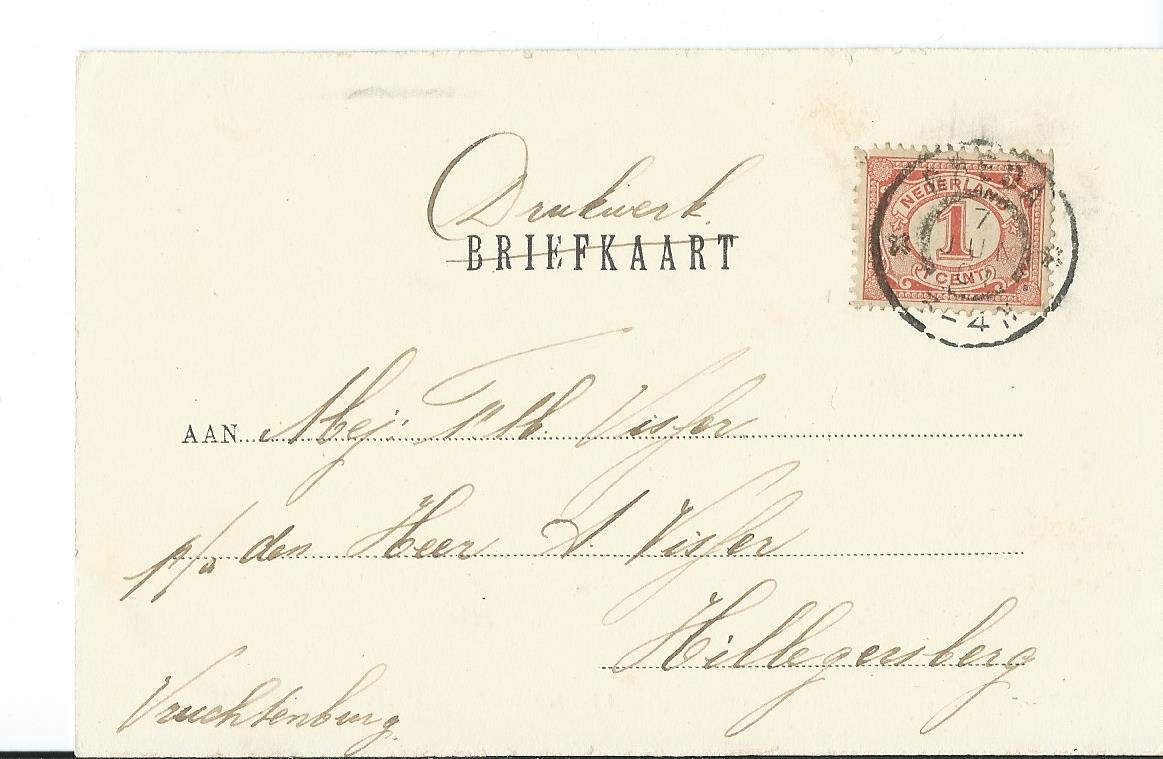 Drukwerk.
BRIEFKAART
NEDERLAND
1
CENT
7
JUN
4
AAN Mej: Visser
p/a den Heer A. Visser
Hillegersberg
Vruchtenburg.